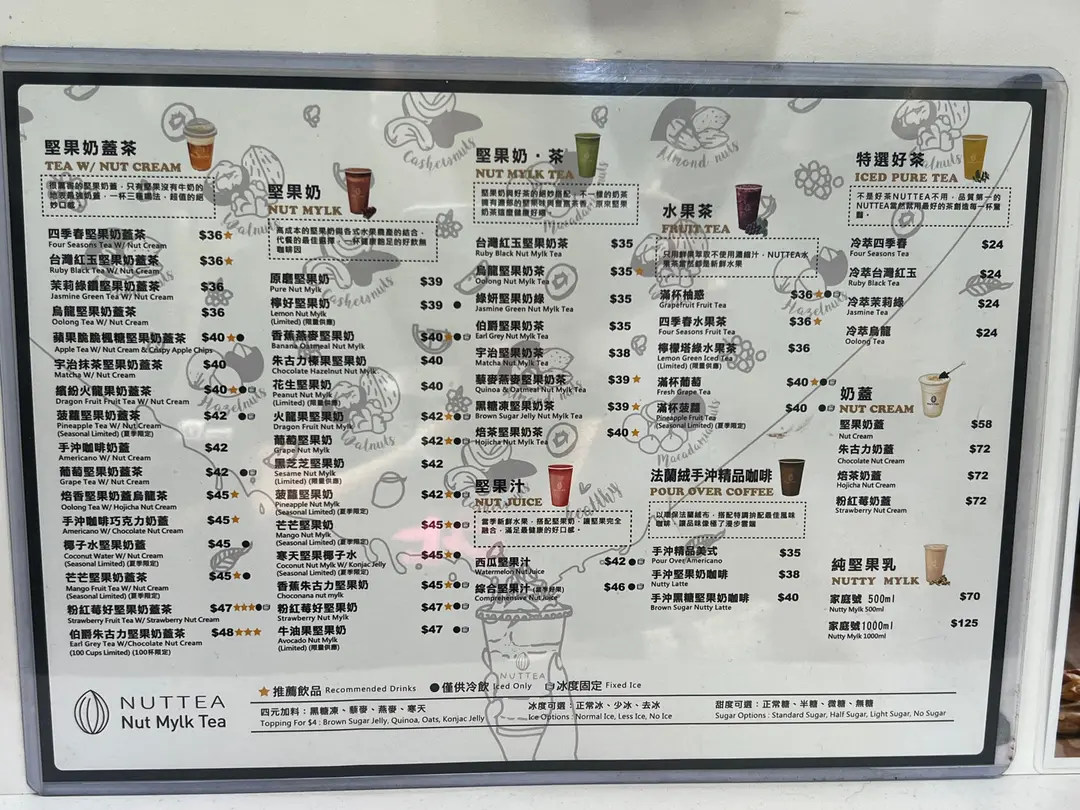 堅果奶蓋茶
TEA W/ NUT CREAM
四季春堅果奶蓋茶 $36
Four Seasons Tea W/ Nut Cream
台灣紅玉堅果奶蓋茶 $36
Ruby Black Tea W/ Nut Cream
茉莉綠鑽堅果奶蓋茶 $36
Jasmine Green Tea W/ Nut Cream
烏龍堅果奶蓋茶 $36
Oolong Tea W/ Nut Cream
蘋果脆脆楓糖堅果奶蓋茶 $40
Apple Tea W/ Nut Cream & Crispy Apple Chips
宇治抹茶堅果奶蓋茶 $40
Matcha W/ Nut Cream
繽紛火龍果堅果奶蓋茶 $40
Dragon Fruit Fruit Tea W/ Nut Cream
菠蘿堅果奶蓋茶 $42
Pineapple Tea W/ Nut Cream
(Seasonal Limited) (夏季限定)
手沖咖啡奶蓋 $42
Americano W/ Nut Cream
葡萄堅果奶蓋茶 $42
Grape Tea W/ Nut Cream
焙香堅果奶蓋烏龍茶 $45
Oolong Tea W/ Hojicha Nut Cream
手沖咖啡巧克力奶蓋 $45
Americano W/ Chocolate Nut Cream
椰子水堅果奶蓋 $45
Coconut Water W/ Nut Cream
(Seasonal Limited) (夏季限定)
芒芒堅果奶蓋茶 $45
Mango Fruit Tea W/ Nut Cream
(Seasonal Limited) (夏季限定)
粉紅莓好堅果奶蓋茶 $47
Strawberry Fruit Tea W/ Strawberry Nut Cream
伯爵朱古力堅果奶蓋茶 $48
Earl Grey Tea W/Chocolate Nut Cream
(100 Cups Limited) (100杯限定)
堅果奶
NUT MYLK
原磨堅果奶 $39
Pure Nut Mylk
檸好堅果奶 $39
Lemon Nut Mylk
(Limited) (限量供應)
香蕉燕麥堅果奶 $40
Banana Oatmeal Nut Mylk
朱古力榛果堅果奶 $40
Chocolate Hazelnut Nut Mylk
花生堅果奶 $40
Peanut Nut Mylk
(Limited) (限量供應)
火龍果堅果奶 $42
Dragon Fruit Nut Mylk
葡萄堅果奶 $42
Grape Nut Mylk
黑芝芝堅果奶 $42
Sesame Nut Mylk
(Limited) (限量供應)
菠蘿堅果奶 $42
Pineapple Nut Mylk
(Seasonal Limited) (夏季限定)
芒芒堅果奶 $45
Mango Nut Mylk
(Seasonal Limited) (夏季限定)
寒天堅果椰子水 $45
Coconut Nut Mylk W/ Konjac Jelly
(Seasonal Limited) (夏季限定)
香蕉朱古力堅果奶 $45
Choconana nut mylk
粉紅莓好堅果奶 $47
Strawberry Nut Mylk
牛油果堅果奶 $47
Avocado Nut Mylk
(Limited) (限量供應)
堅果奶・茶
NUT MYLK TEA
台灣紅玉堅果奶茶 $35
Ruby Black Nut Mylk Tea
烏龍堅果奶茶 $35
Oolong Nut Mylk Tea
綠妍堅果奶綠 $35
Jasmine Green Nut Mylk Tea
伯爵堅果奶茶 $35
Earl Grey Nut Mylk Tea
宇治堅果奶茶 $38
Matcha Nut Mylk Tea
藜麥燕麥堅果奶茶 $39
Quinoa & Oatmeal Nut Mylk Tea
黑糖凍堅果奶茶 $39
Brown Sugar Jelly Nut Mylk Tea
焙茶堅果奶茶 $40
Hojicha Nut Mylk Tea
堅果汁
NUT JUICE
當季新鮮水果，搭配堅果奶，讓堅果完全
融合，滿足最健康的好口感。
西瓜堅果汁 $42
Watermelon Nut Juice
綜合堅果汁 $46
Comprehensive Nut Juice
水果茶
FRUIT TEA
只用鮮果萃取不使用濃縮汁，NUTTEA水
果茶當然都是新鮮水果
滿杯柚惑 $36
Grapefruit Fruit Tea
四季春水果茶 $36
Four Seasons Fruit Tea
檸檬塔綠水果茶 $36
Lemon Green Iced Tea
(Limited) (限量供應)
滿杯葡萄 $40
Fresh Grape Tea
滿杯菠蘿 $40
Pineapple Fruit Tea
(Seasonal Limited) (夏季限定)
法蘭絨手沖精品咖啡
POUR OVER COFFEE
以環保法蘭絨布，搭配特調拚配最佳風味
咖啡，讓品味像極了漫步雲端
手沖精品美式 $35
Pour Over Americano
手沖堅果奶咖啡 $38
Nutty Latte
手沖黑糖堅果奶咖啡 $40
Brown Sugar Nutty Latte
特選好茶
ICED PURE TEA
不是好茶NUTTEA不用，品質第一的
NUTTEA當然就用最好的茶創造每一杯驚
豔。
冷萃四季春 $24
Four Seasons Tea
冷萃台灣紅玉 $24
Ruby Black Tea
冷萃茉莉綠 $24
Jasmine Tea
冷萃烏龍 $24
Oolong Tea
奶蓋
NUT CREAM
堅果奶蓋 $58
Nut Cream
朱古力奶蓋 $72
Chocolate Nut Cream
焙茶奶蓋 $72
Hojicha Nut Cream
粉紅莓奶蓋 $72
Strawberry Nut Cream
純堅果乳
NUTTY MYLK
家庭號 500ml $70
Nutty Mylk 500ml
家庭號1000ml $125
Nutty Mylk 1000ml
NUTTEA
NUTTEA
Nut Mylk Tea
推薦飲品 Recommended Drinks 僅供冷飲 Iced Only 冰度固定 Fixed Ice
四元加料：黑糖凍、藜麥、燕麥、寒天
Topping For $4 : Brown Sugar Jelly, Quinoa, Oats, Konjac Jelly
冰度可選：正常冰、少冰、去冰
Ice Options : Normal Ice, Less Ice, No Ice
甜度可選：正常糖、半糖、微糖、無糖
Sugar Options : Standard Sugar, Half Sugar, Light Sugar, No Sugar